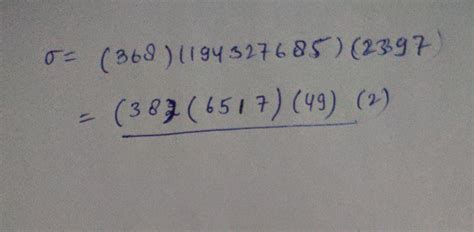 σ = (368)(194327685)(2397)
= (382(6517)(49) (2)